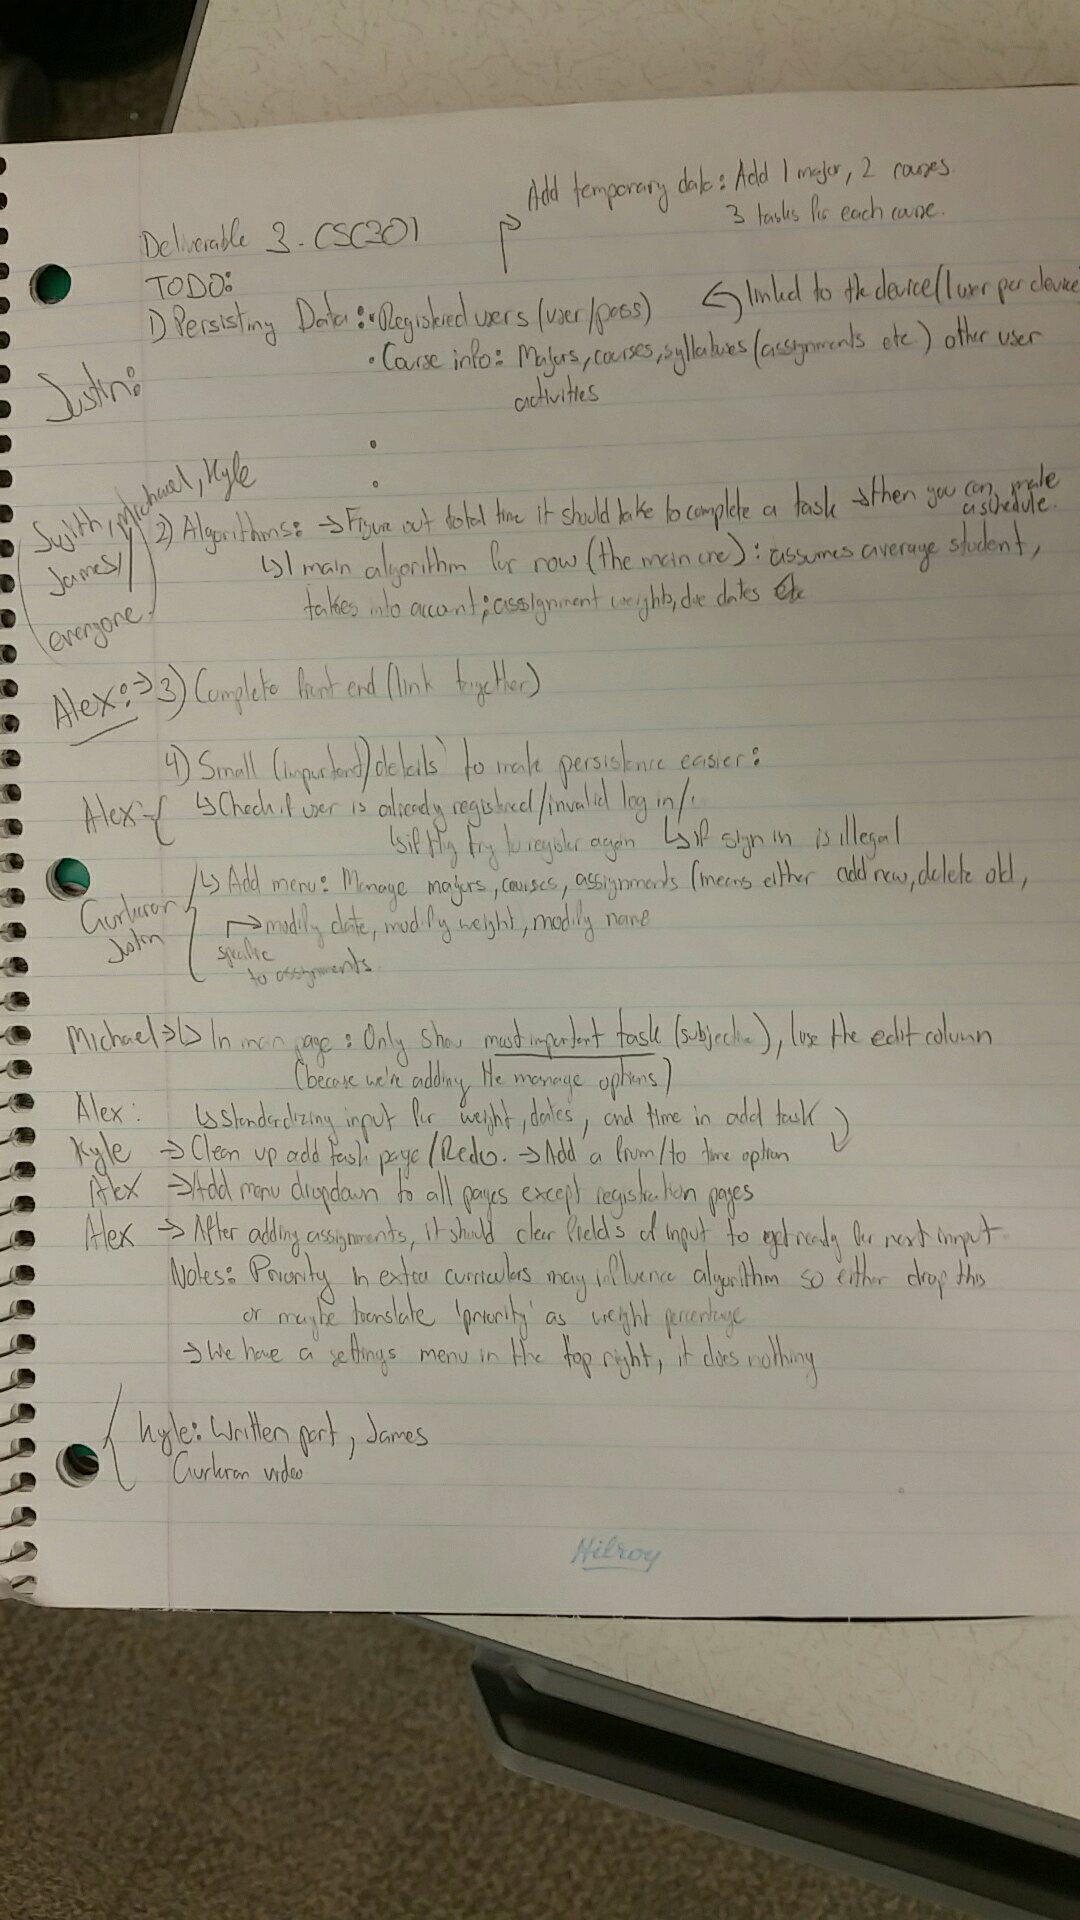 Add temporary data: Add 1 major, 2 courses.
3 tasks for each course.
Deliverable 3 - CSC301
TODO:
1) Persisting Data: • Registered users (user/pass)
linked to the device (1 user per device
• Course info: Majors, courses, syllabuses (assignments etc.) other user
activities
Justin:
Sujith, Michael, Kyle
James/
everyone.
2) Algorithms: → Figure out total time it should take to complete a task → then you can make
a schedule.
↳ 1 main algorithm for now (the main one): assumes average student,
takes into account; assignment weights, due dates etc
Alex: → 3) Complete front end (link together)
4) Small (important) details to make persistence easier:
Alex - { ↳ Check if user is already registered/invalid log in/
↳ if they try to register again ↳ if sign in is illegal
Gurkran
Justin
↳ Add menu: Manage majors, courses, assignments (means either add new, delete old,
→ modify date, modify weight, modify name
specific
to assignments
Michael → ↳ In main page: Only show most important task (subjective), lose the edit column
(because we're adding the manage options)
Alex: ↳ standardizing input for weight, dates, and time in add task
Kyle → Clean up add task page/Redo. → Add a from/to time option
Alex → Add menu dropdown to all pages except registration pages
Alex → After adding assignments, it should clear fields of input to get ready for next input
Notes: Priority in extra curriculars may influence algorithm so either drop this
or maybe translate 'priority' as weight percentage
→ We have a settings menu in the top right, it does nothing
Kyle: Written part, James
Gurkran video
Hilroy